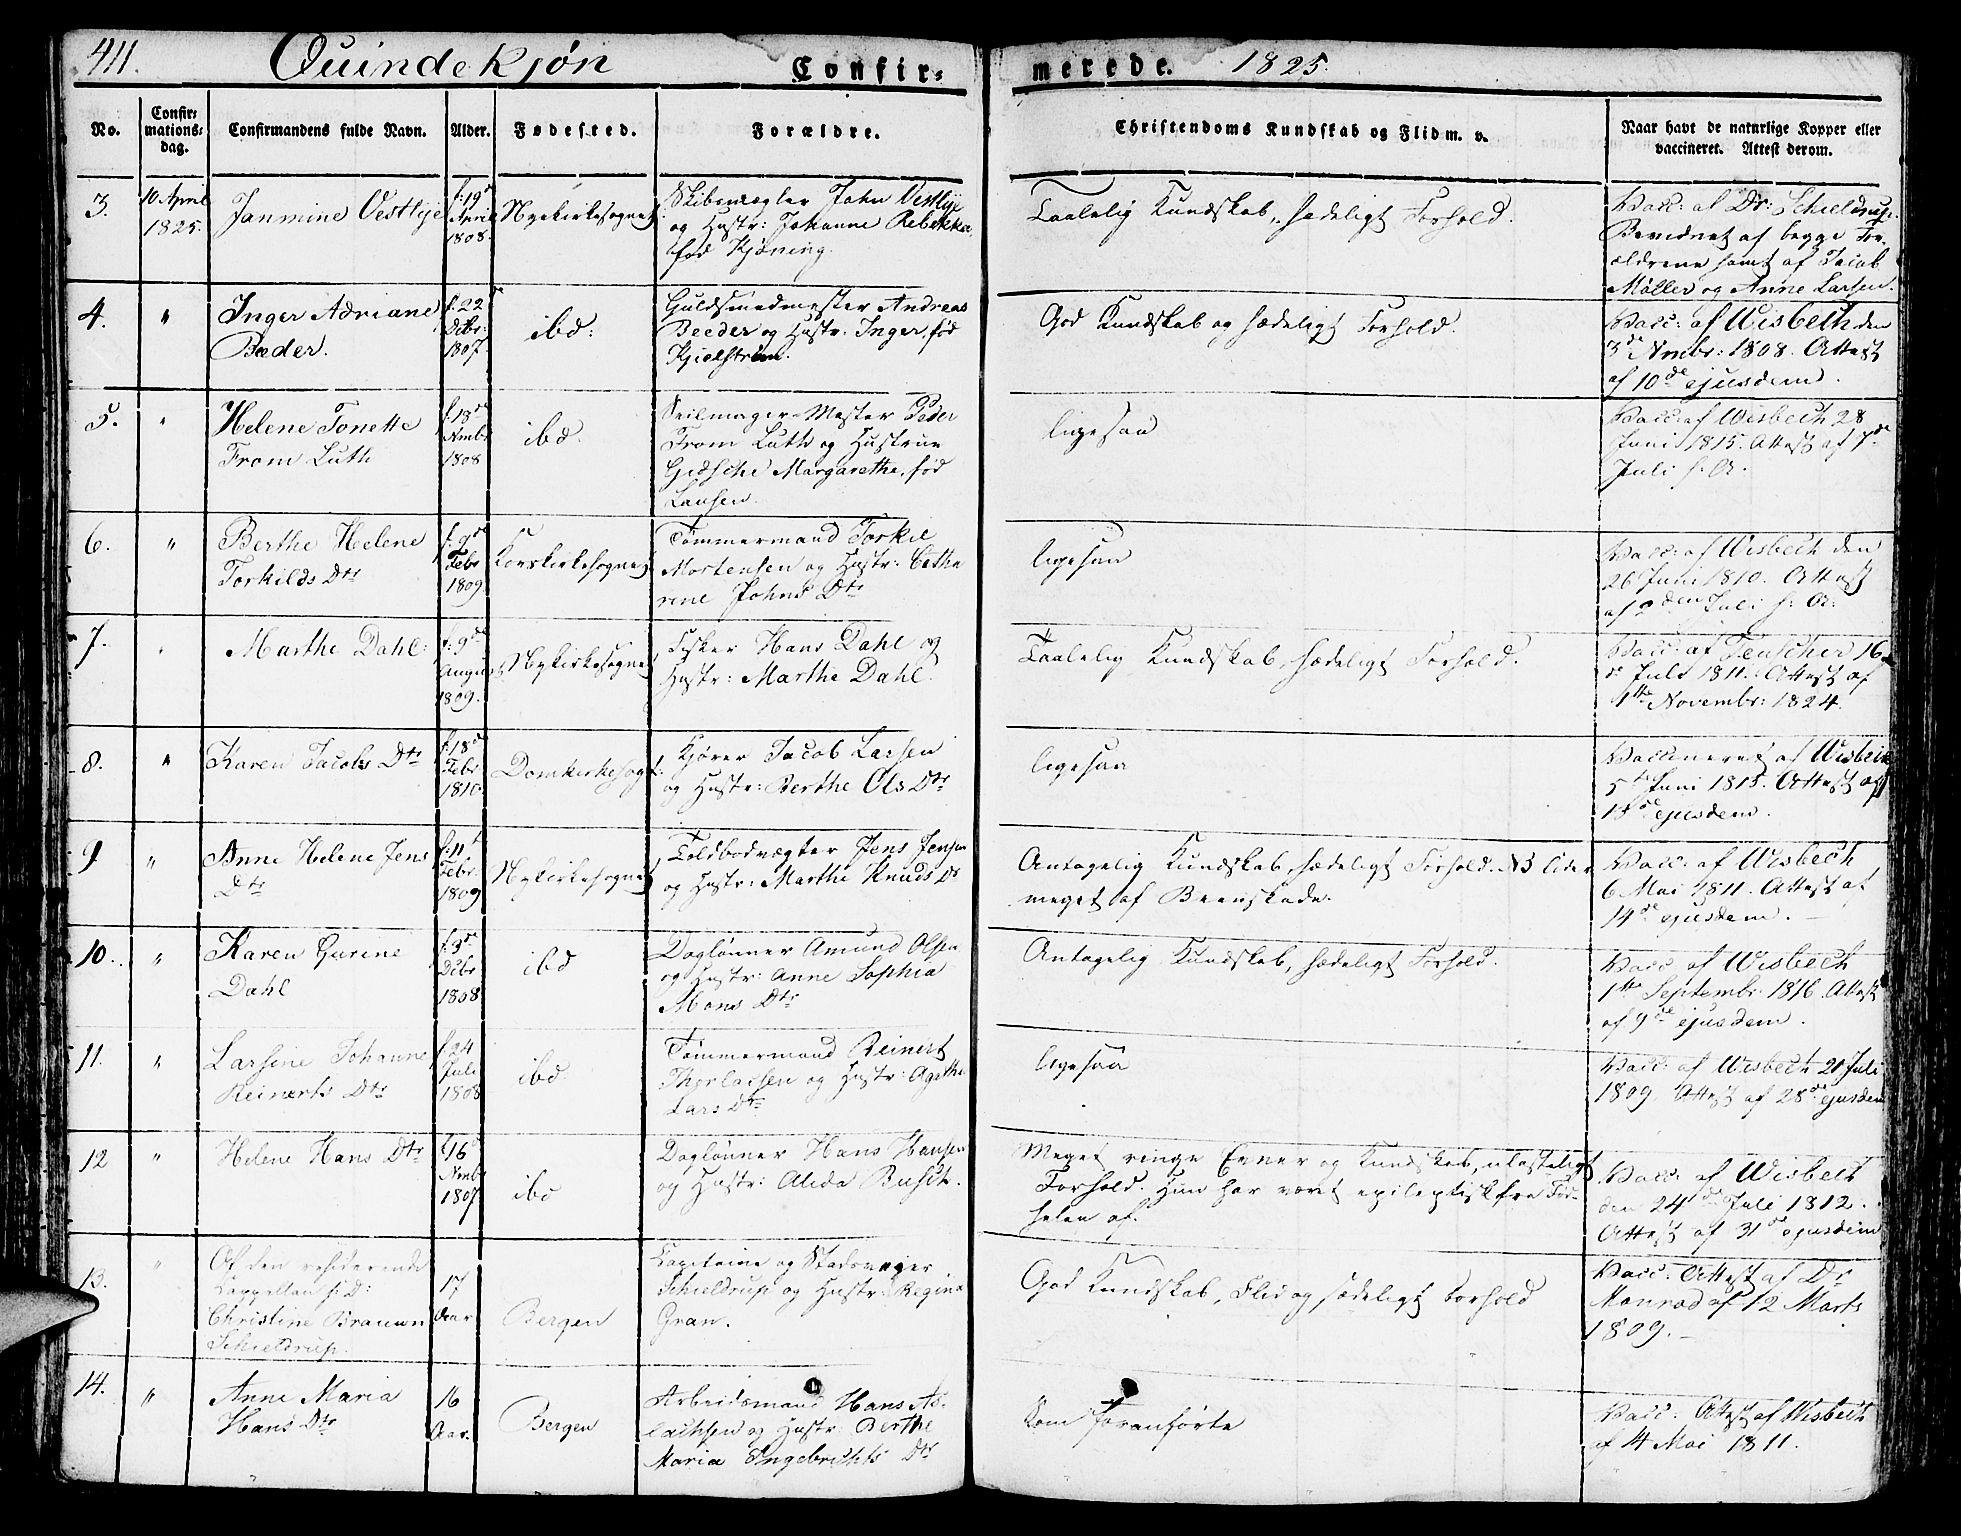 411. Quindekjøn Confir-
merede. 1825.
No. Confir-mations-dag. Confirmandens fulde Navn. Alder. Fødested. Forældre. Christendoms Kundskab og Flid m. v. Naar havt de naturlige Kopper eller vaccineret. Attest derom.
3. 10 April 1825. Janmine Vestlye f: 19de April 1808. Nyekirkesognet
Skibsmægler John Vestlye
og Hustr: Johanne Rebekka,
fød Kjøning.
Taalelig Kundskab, sædeligt Forhold.
Vacc: af Dr: Schieldrup.
Bevidnet af begge For-
ældrene samt af Jacob
Møller og Anne Larsen.
4. " Inger Adriane
Beder.
f: 22de Decbr: 1807. ibd:
Guldsmedmester Andreas
Beeder og Hustr: Inger, fød
Kjielstrøm.
God Kundskab og sædeligt Forhold.
Vacc: af Wisbech den
3de Nmbr: 1808. Attest
af 10de ejusdem.
5. " Helene Tonette
From Luth
f: 18de Nmbr 1808 ibd.
Seilmager-Mester Peder
From Luth og Hustrue
Gidsche Margarethe, fød
Lausen.
ligesaa
Vacc: af Wisbech 28
Juni 1815. Attest af 7de
Juli s: A.
6. " Berthe Helene
Torkilds Dtr
f: 9de Febr 1809 Korskirkesognet
Tømmermand Torkil
Mortensen og Hustr: Cathe
rine Johns Dtr
ligesaa
Vacc: af Wisbech den
26 Juni 1810. Attest
af den Juli s: A:
7. " Marthe Dahl: f: 9de August 1809. Nykirkesognet
Fisker Hans Dahl og
Hustr: Marthe Dahl.
Taalelig Kundskab, sædeligt Forhold.
Vacc: af Teuscher 16
de Juli 1811. Attest af
1ste Novembr: 1824.
8. " Karen Jacobs Dtr f: 18de Febr 1810 Domkirkesogn:
Kjører Jacob Larsen
og Hustr: Berthe Ols Dtr
ligesaa
Vaccineret af Wisbech
5te Juni 1815. Attest af
18de ejusdem.
9. " Anne Helene Jens
Dtr
f: 11te Febr. 1809 Nykirkesognet
Toldbodvægter Jens Jensen
og Hustr: Marthe Knuds Dr
Antagelig Kundskab, sædeligt Forhold. NB lider
meget af Beenskade.
Vacc: af Wisbech
6 Mai 1811. Attest af
14de ejusdem.
10. " Karen Gurine
Dahl
f. 3de Dcbr 1808 ibd
Daglønner Amund Olsen
og Hustr: Anne Sophia
Mons Dtr
Antagelig Kundskab, sædeligt Forhold.
Vacc af Wisbech
1ste Septembr. 1816. Attest
af 9de ejusdem.
11. " Larsine Johanne
Reinerts Dtr
f: 24 Juli 1808 ibd.
Tømmermand Reinert
Thorlachsen og Hustr: Agathe
Lars Dtr
ligesaa
Vacc: af Wisbech 20 Juli
1809. Attest af 28de ejusdem
12 " Helene Hans Dtr f. 16 Nmb 1807 ibd
Daglønner Hans Hansen
og Hustr: Alida Busch.
Meget ringe Evner og Kundskab, ulasteligt
Forhold. Hun har været epileptisk fra Fød-
selen af.
Vacc: af Wisbech
den 24de Juli 1812.
Attest af 31de ejusdem
13. " Af den residerende
Cappellan s: D:
Christine Brauwn
Schieldrup.
17 Aar Bergen
Capitaine og Stadsveyer
Schieldrup og Hustr: Regina
Gran.
God Kundskab, Flid og sædeligt Forhold
Vacc: Attest af Dr
Monrad af 12 Marts
1809.
14. " Anne Maria
Hans Dtr
16 Aar. Bergen
Arbeidsmand Hans As-
lachsen og Hustr: Berthe
Maria Ingebrichts Dtr
Som foranførte
Vacc: Attest af Wisbech
af 4 Mai 1811.